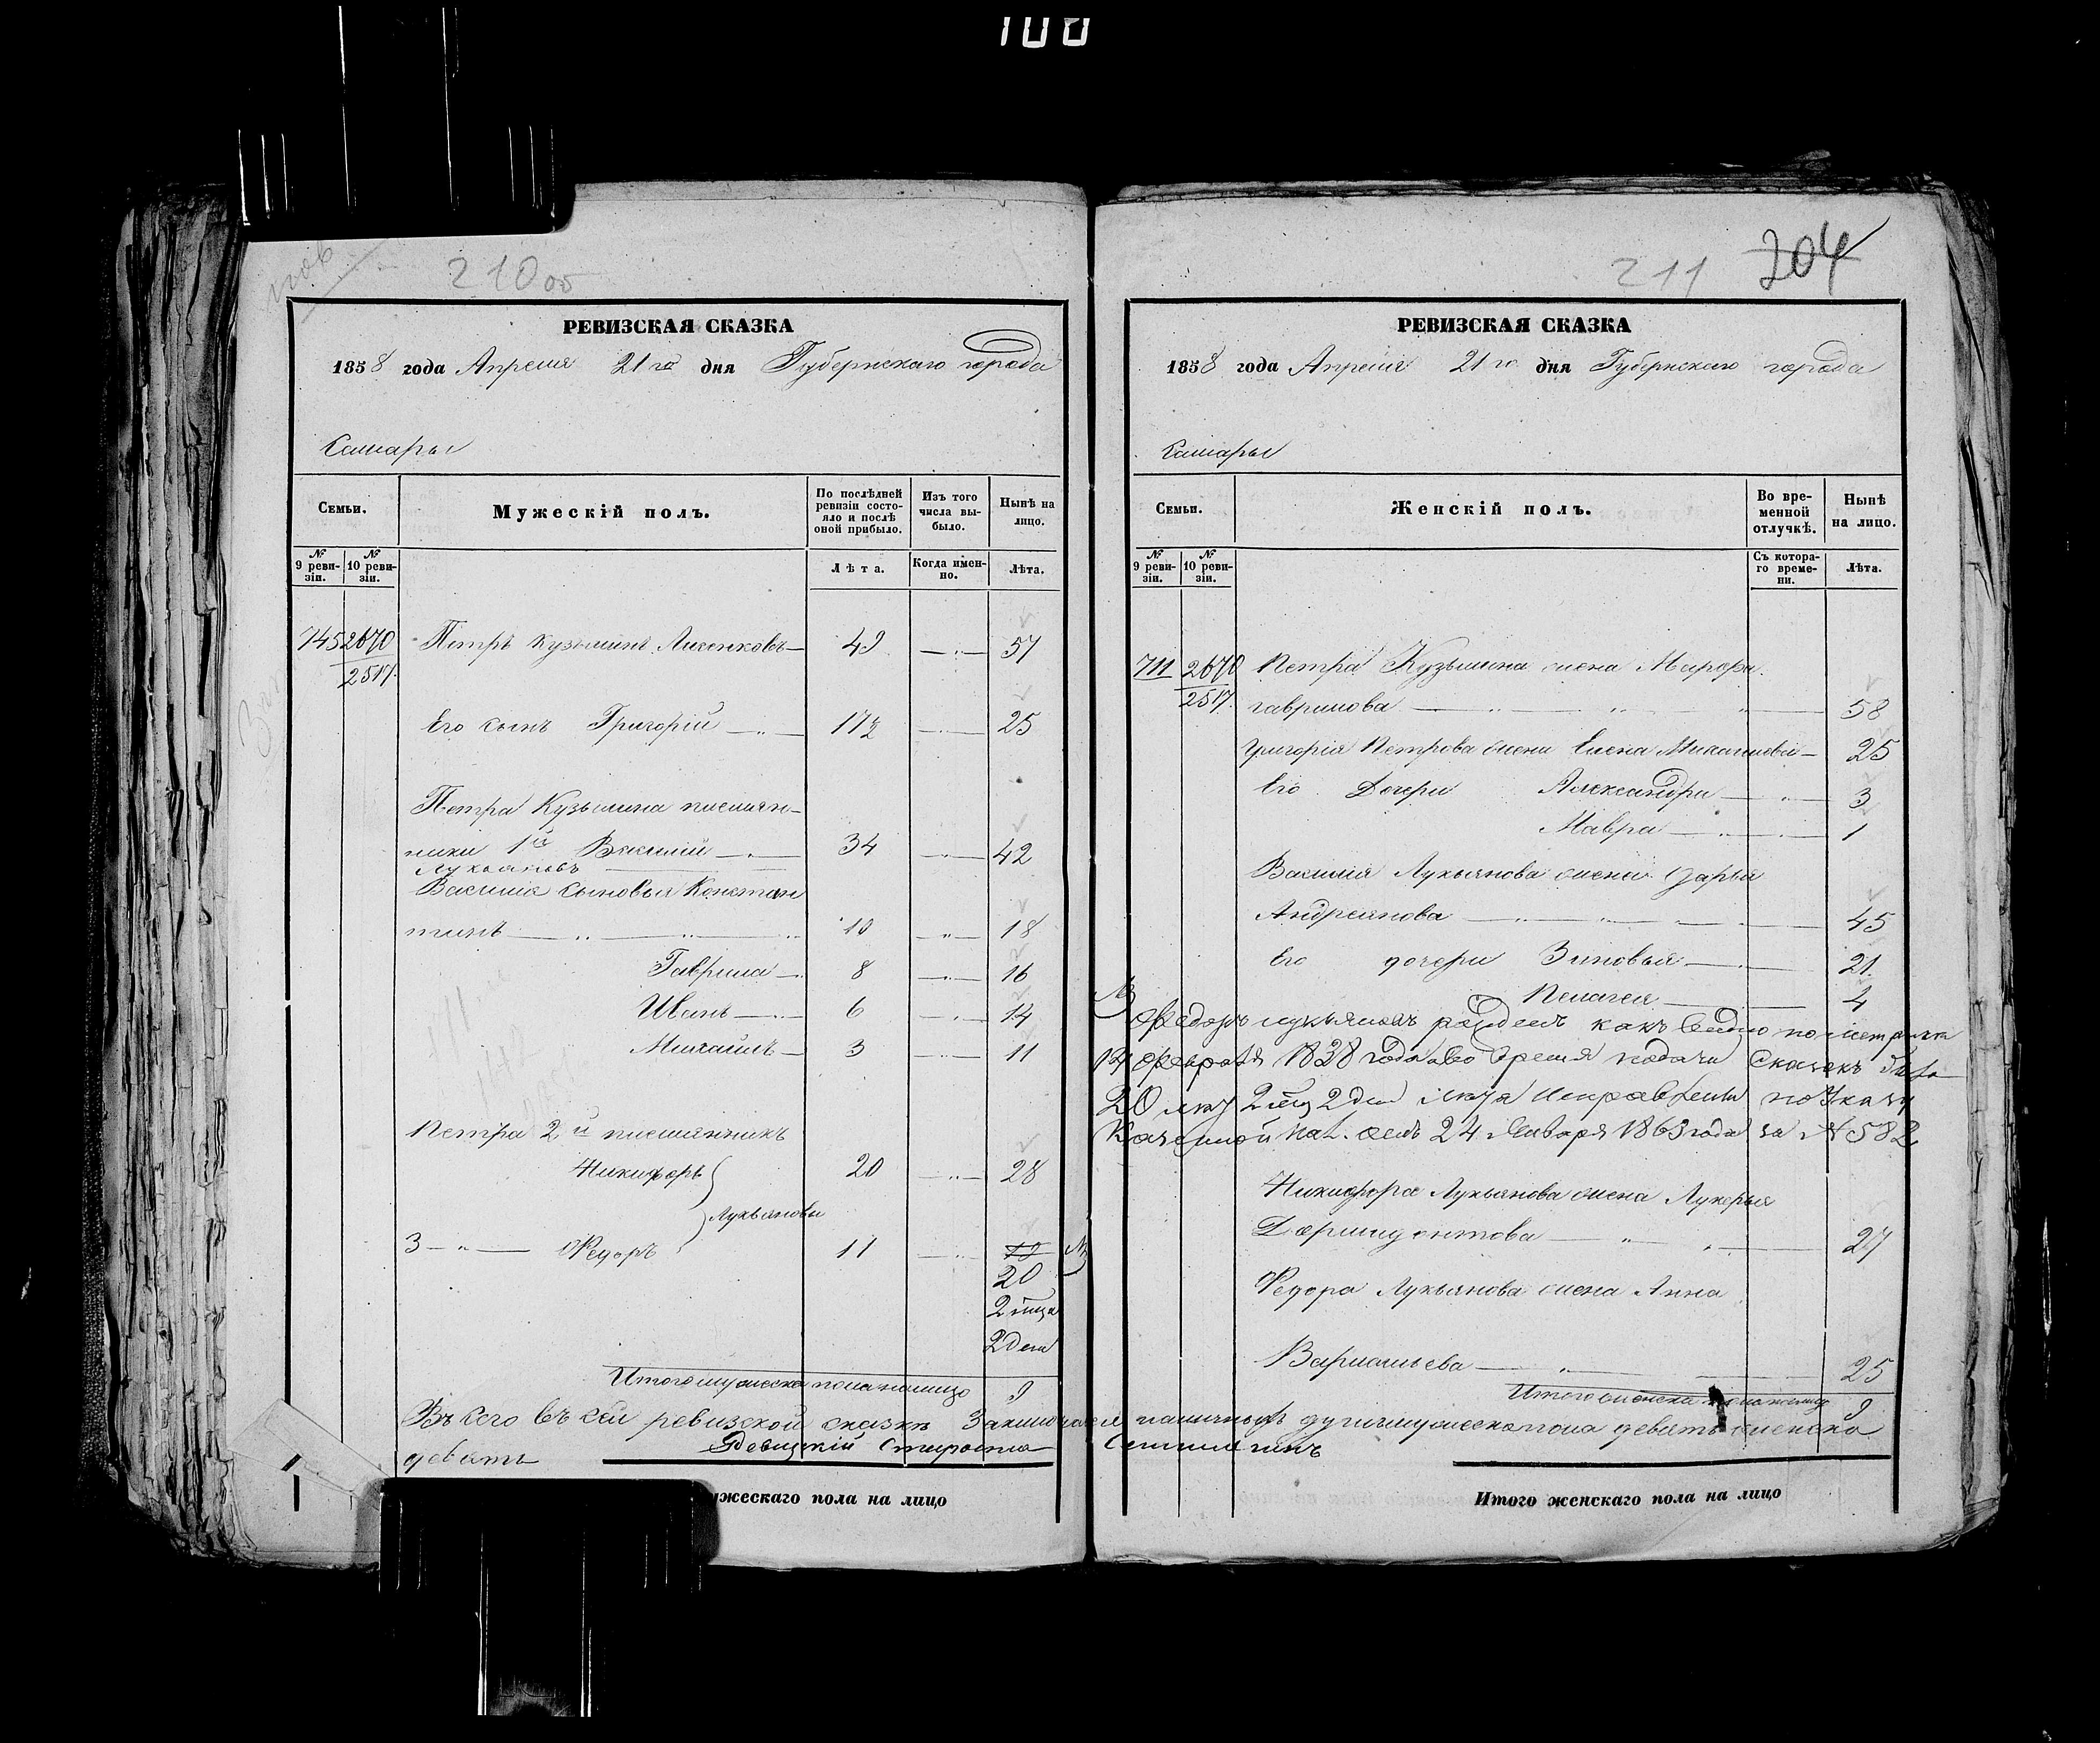 100
210 об
РЕВИЗСКАЯ СКАЗКА
1858 года Апреля 21го дня Губернскаго города
Самары
Семьи.
Мужескій полъ.
По послѣдней ревизіи состояло и послѣ оной прибыло.
Изъ того числа выбыло.
Нынѣ на лицо.
№ 9 ревизіи.
№ 10 ревизіи.
Лѣта.
Когда именно.
Лѣта.
745 2670 Петръ Кузьминъ Лиженковъ — 49 — " — 57
2517.
Его сынъ Григорій — " — 17½ — 25
Петра Кузьмина племян-
ники 1й Василій — " — 34 — " — 42
Лукьяновъ
Василія сыновья Констан
тинъ — " — " — " 10 — " — 18
Гаврила — 8 — " — 16
Иванъ — " — 6 — " — 14
Михайлъ — 3 — " — 11
Петра 2й племянникъ
Никифоръ 20 — " — 28
Лукьяновы
3 — " — Федоръ 11 — " — 19 №
20
2 мца
2 дня
Итого мужеска пола налицо 9
Всего въ сей ревизской сказкѣ Заключается наличныхъ душъ мужеска пола девять женска
девять
Девицкій Староста
мужескаго пола на лицо
211 204
РЕВИЗСКАЯ СКАЗКА
1858 года Апреля 21го дня Губернскаго города
Самары
Семьи.
Женскій полъ.
Во временной отлучкѣ.
Нынѣ на лицо.
№ 9 ревизіи.
№ 10 ревизіи.
Съ котораго времени.
Лѣта.
711 2670 Петра Кузьмина жена Марфа
2517. Гаврилова — " — " — " — 58
Григорія Петрова жена Елена Михайлова — 25
Его Дочери Александра — " — 3
Мавра — " — 1
Василія Лукьянова жена Дарья
Андреянова — " — " — " — 45
Его дочери Зиновья — 21.
Пелагея — 4
№ Федоръ Лукьяновъ рожденъ какъ видно по метрика
14 февраля 1838 года а во время подачи Сказокъ было
20 лѣтъ 2 мца 2 дня лѣта исправлены по Указу
Казенной Пал. отъ 24 Января 1863 года за № 582
Никифора Лукьянова жена Лукерья
27
Федора Лукьянова жена Анна
Варламьева — " — 25
Итого женска пола налицо 9
Итого женскаго пола на лицо